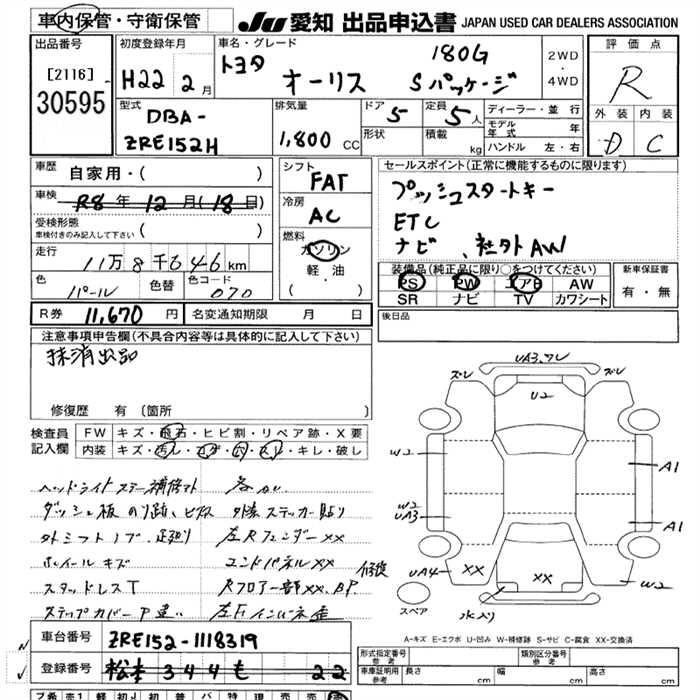 車内保管・守衛保管
JU 愛知 出品申込書 JAPAN USED CAR DEALERS ASSOCIATION
出品番号
[2116]
30595
初度登録年月
H22 2月
車名・グレード
トヨタ オーリス 180G Sパッケージ
2WD・4WD
評価点
R
外装 内装
D C
型式
DBA-
ZRE152H
排気量
1,800 cc
ドア 5
形状
定員 5人
積載 kg
ディーラー・並行
モデル年式 年
ハンドル 左・右
車歴 自家用・( )
車検 R8年12月(18日)
受検形態
車検付きのみ記入して下さい ( )
走行 11万8千646km
色 パール 色替 色コード 070
シフト
FAT
冷房
AC
燃料
ガソリン
軽・油
( ・ )
セールスポイント(正常に機能するものに限ります)
プッシュスタートキー
ETC
ナビ、社外AW
装備品(純正品に限り○をつけてください)
PS PW エアB AW
SR ナビ TV カワシート
新車保証書
有・無
R券 11,670円 名変通知期限 月 日
後日品
注意事項申告欄(不具合内容等は具体的に記入して下さい)
抹消出品
修復歴 有 〔箇所 〕
検査員記入欄
FW キズ・飛石・ヒビ割・リペア跡・X要
内装 キズ・汚レ・コゲ・穴・スレ・キレ・破レ
ヘッドライトステー補修アト 各カレ
ダッシュ板のり跡、ビス穴 外装ステッカー貼り
外シフトノブ、足廻り 左RフェンダーXX
ホイールキズ エンドパネルXX 修復
スタッドレスT Rフロアー一部XX、BP
ステップカバーP違い 左Fインパネ歪
UA3、ワレ
ズレ ズレ
U2
W2
A1
W2
UA3
A1
UA4 XX
XX
W2
水入り
スペア
A-キズ E-エクボ U-凹み W-補修跡 S-サビ C-腐食 XX-交換済
車台番号 ZRE152-1118319
登録番号 松本 344 も 22
形式指定番号 参考
類別区分番号 参考
車庫証明用 参考 長さ cm 幅 cm 高さ cm